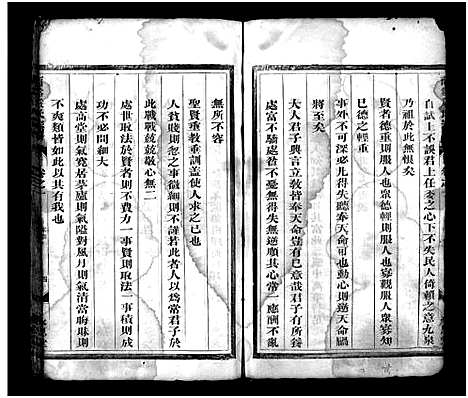 自試上不誤君上任委之心下不失民人倚賴之意九泉
乃祖於此無恨矣
賢者德重則服人也眾德輕則服人也寡觀服人眾寡知
已德之輕重
事外不可深必凡得失聽奉天命可也動心則逆天命禍
將至矣
大人君子興言立敎皆奉天命豈有已意哉君子有所養
處富不驕處貧不憂無得失無逆順其心常一應酬不亂
無所不容
聖賢垂敎垂訓蓋使人求之已也
人貧賤則忽之事微細則不謹若此者人以為常君子於
此戰戰兢兢敬心無二
處世取法於賢者則不費力一事賢則取法一事積則成
功不必問細大
處高堂則氣寬居茅廬則氣隘對風月則氣清當晦昧則
不爽類皆如此以其有我也